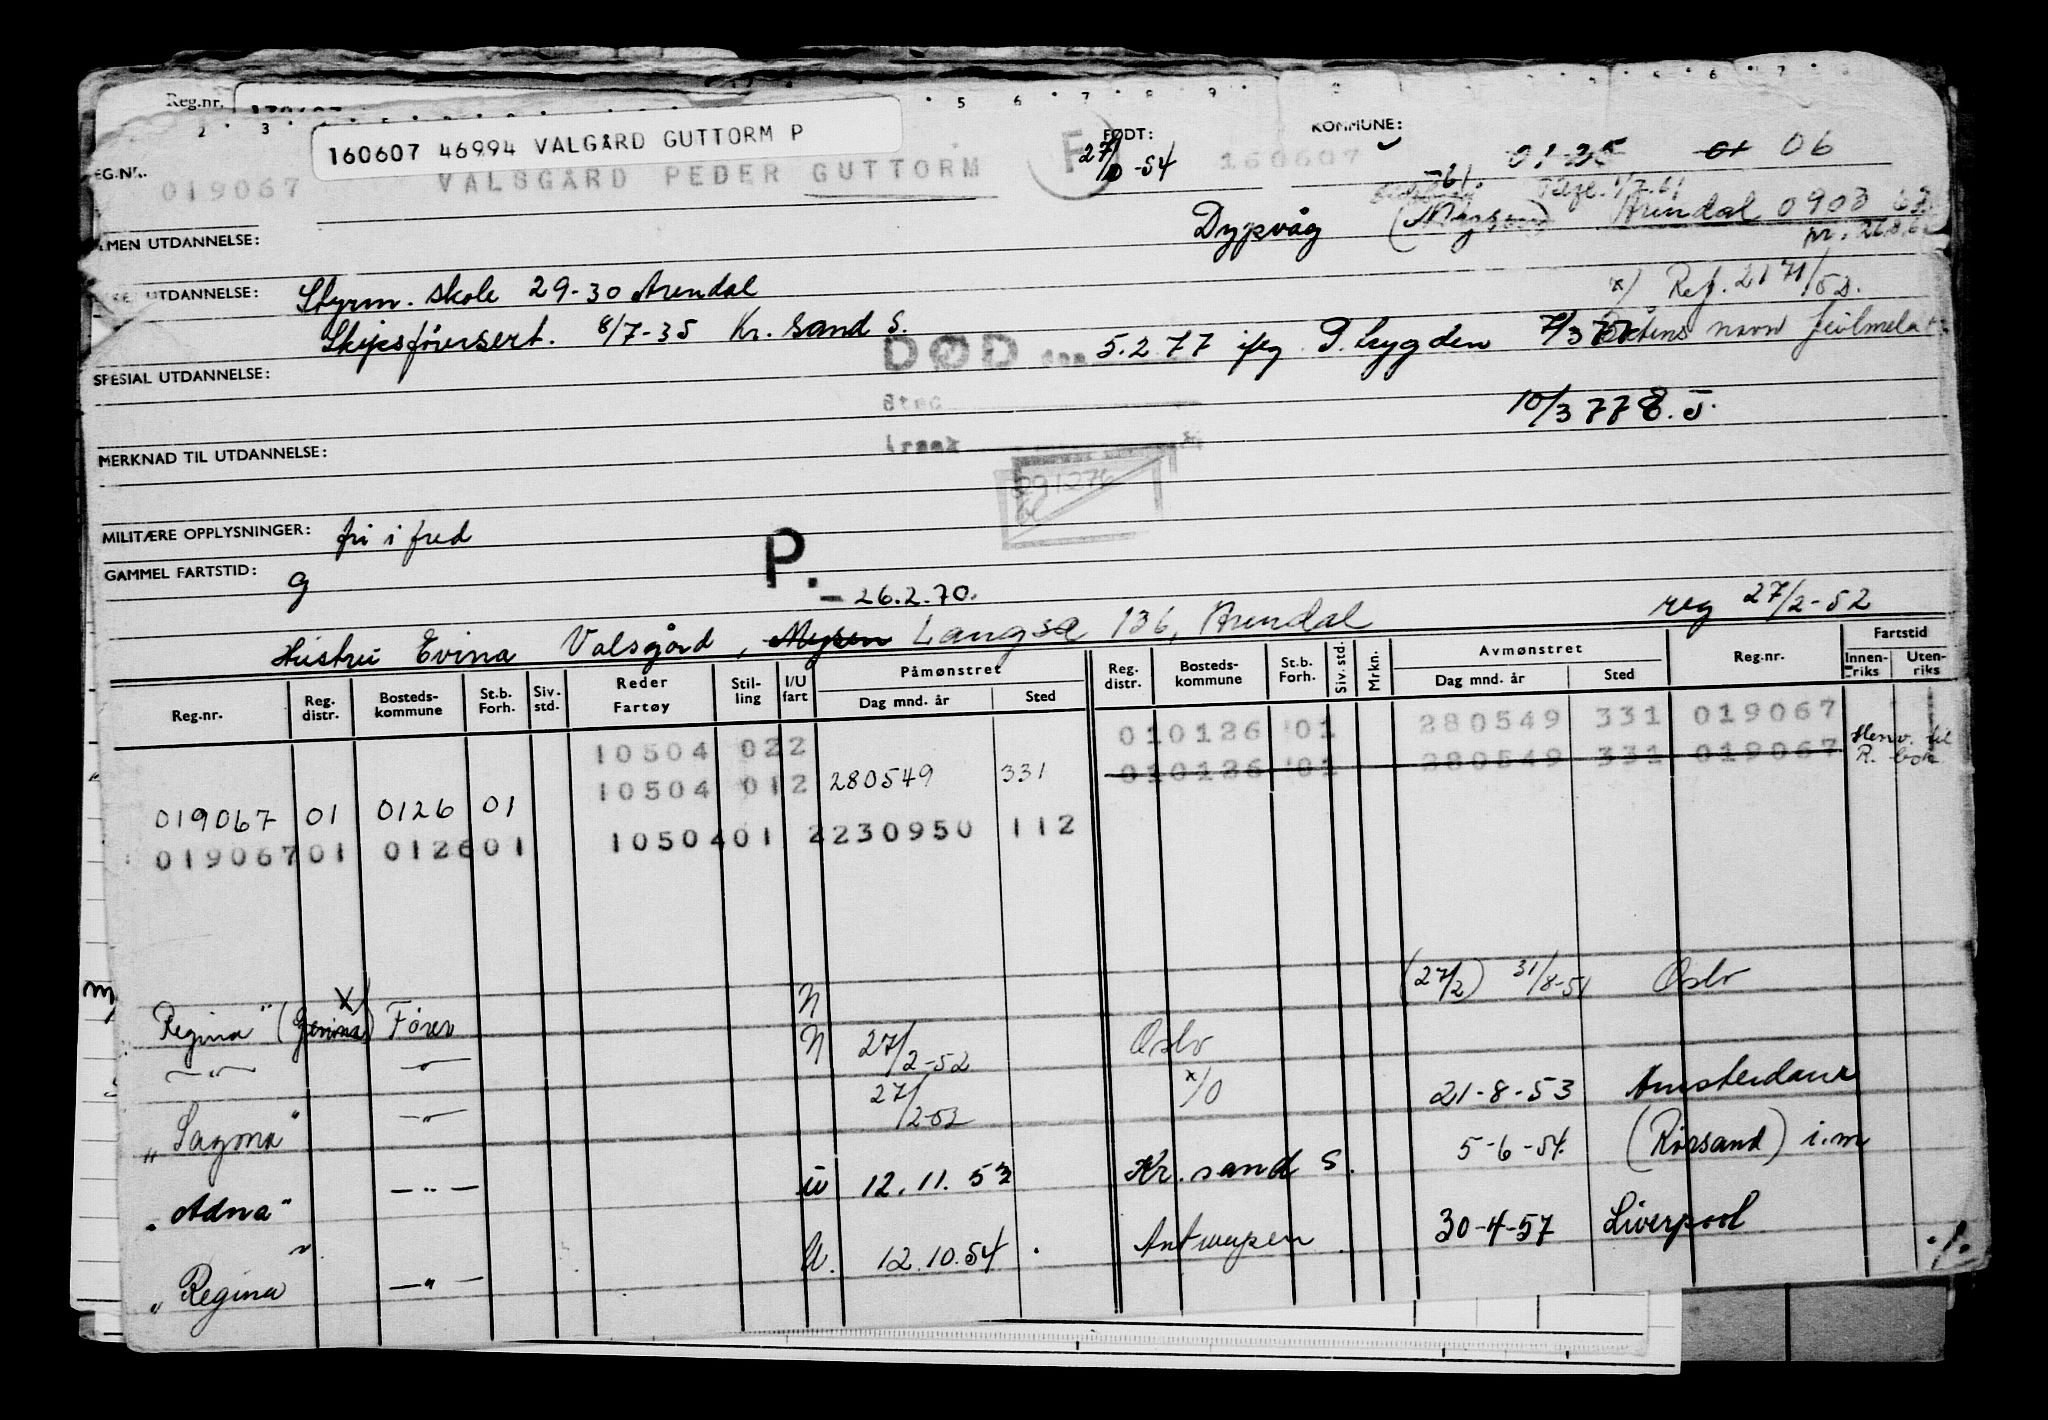 Reg.nr.
160607 46994 VALGÅRD GUTTORM P
FØDT:
KOMMUNE:
019067
VALSGÅRD PEDER GUTTORM
F
-54
160607
01-35 01 06
Dypvåg
Arendal 0903 63
UTDANNELSE:
UTDANNELSE:
Styrm. skole 29-30 Arendal
Skipsførersert. 8/7-35 Kr. sand S.
x) Ref. 2171/52.
DØD den 5.2.77 ifg P. trygden 7/3 77
navn feilmeldt
SPESIAL UTDANNELSE:
Sted
Årsak
10/3 77
MERKNAD TIL UTDANNELSE:
291276
MILITÆRE OPPLYSNINGER: fri i fred
GAMMEL FARTSTID: g
P.
- 26.2.70.
reg 27/2-52
Hustru Evina Valsgård, Mysen Langsæ 136, Arendal
Reg.nr. Reg. distr. Bosteds-kommune St.b. Forh. Siv. std. Reder Fartøy Stil-ling I/U fart Påmønstret Dag mnd. år Sted Reg. distr. Bosteds-kommune St.b. Forh. Siv. std. Mrkn. Avmønstret Dag mnd. år Sted Reg.nr. Fartstid Innen-riks Uten-riks
10504 022 010126 01 280549 331 019067
Henv. til R. bok
019067 01 0126 01 10504 012 280549 331 010126 01 280549 331 019067
019067 01 0126 01 10504 01 2 230950 112
"Regina" (Gerina) x) Fører N (27/2) 31/8-51 Oslo
-"- -"- N 27/2-52 Oslo
"Sagona" -"- 27/2-52 x/0 21-8-53 Amsterdam
"Adna" -"- U 12.11.53 Kr. sand S. 5-6-54. (Rørsand) i.m
"Regina" -"- U. 12.10.54 Antwerpen 30-4-57 Liverpool
./.